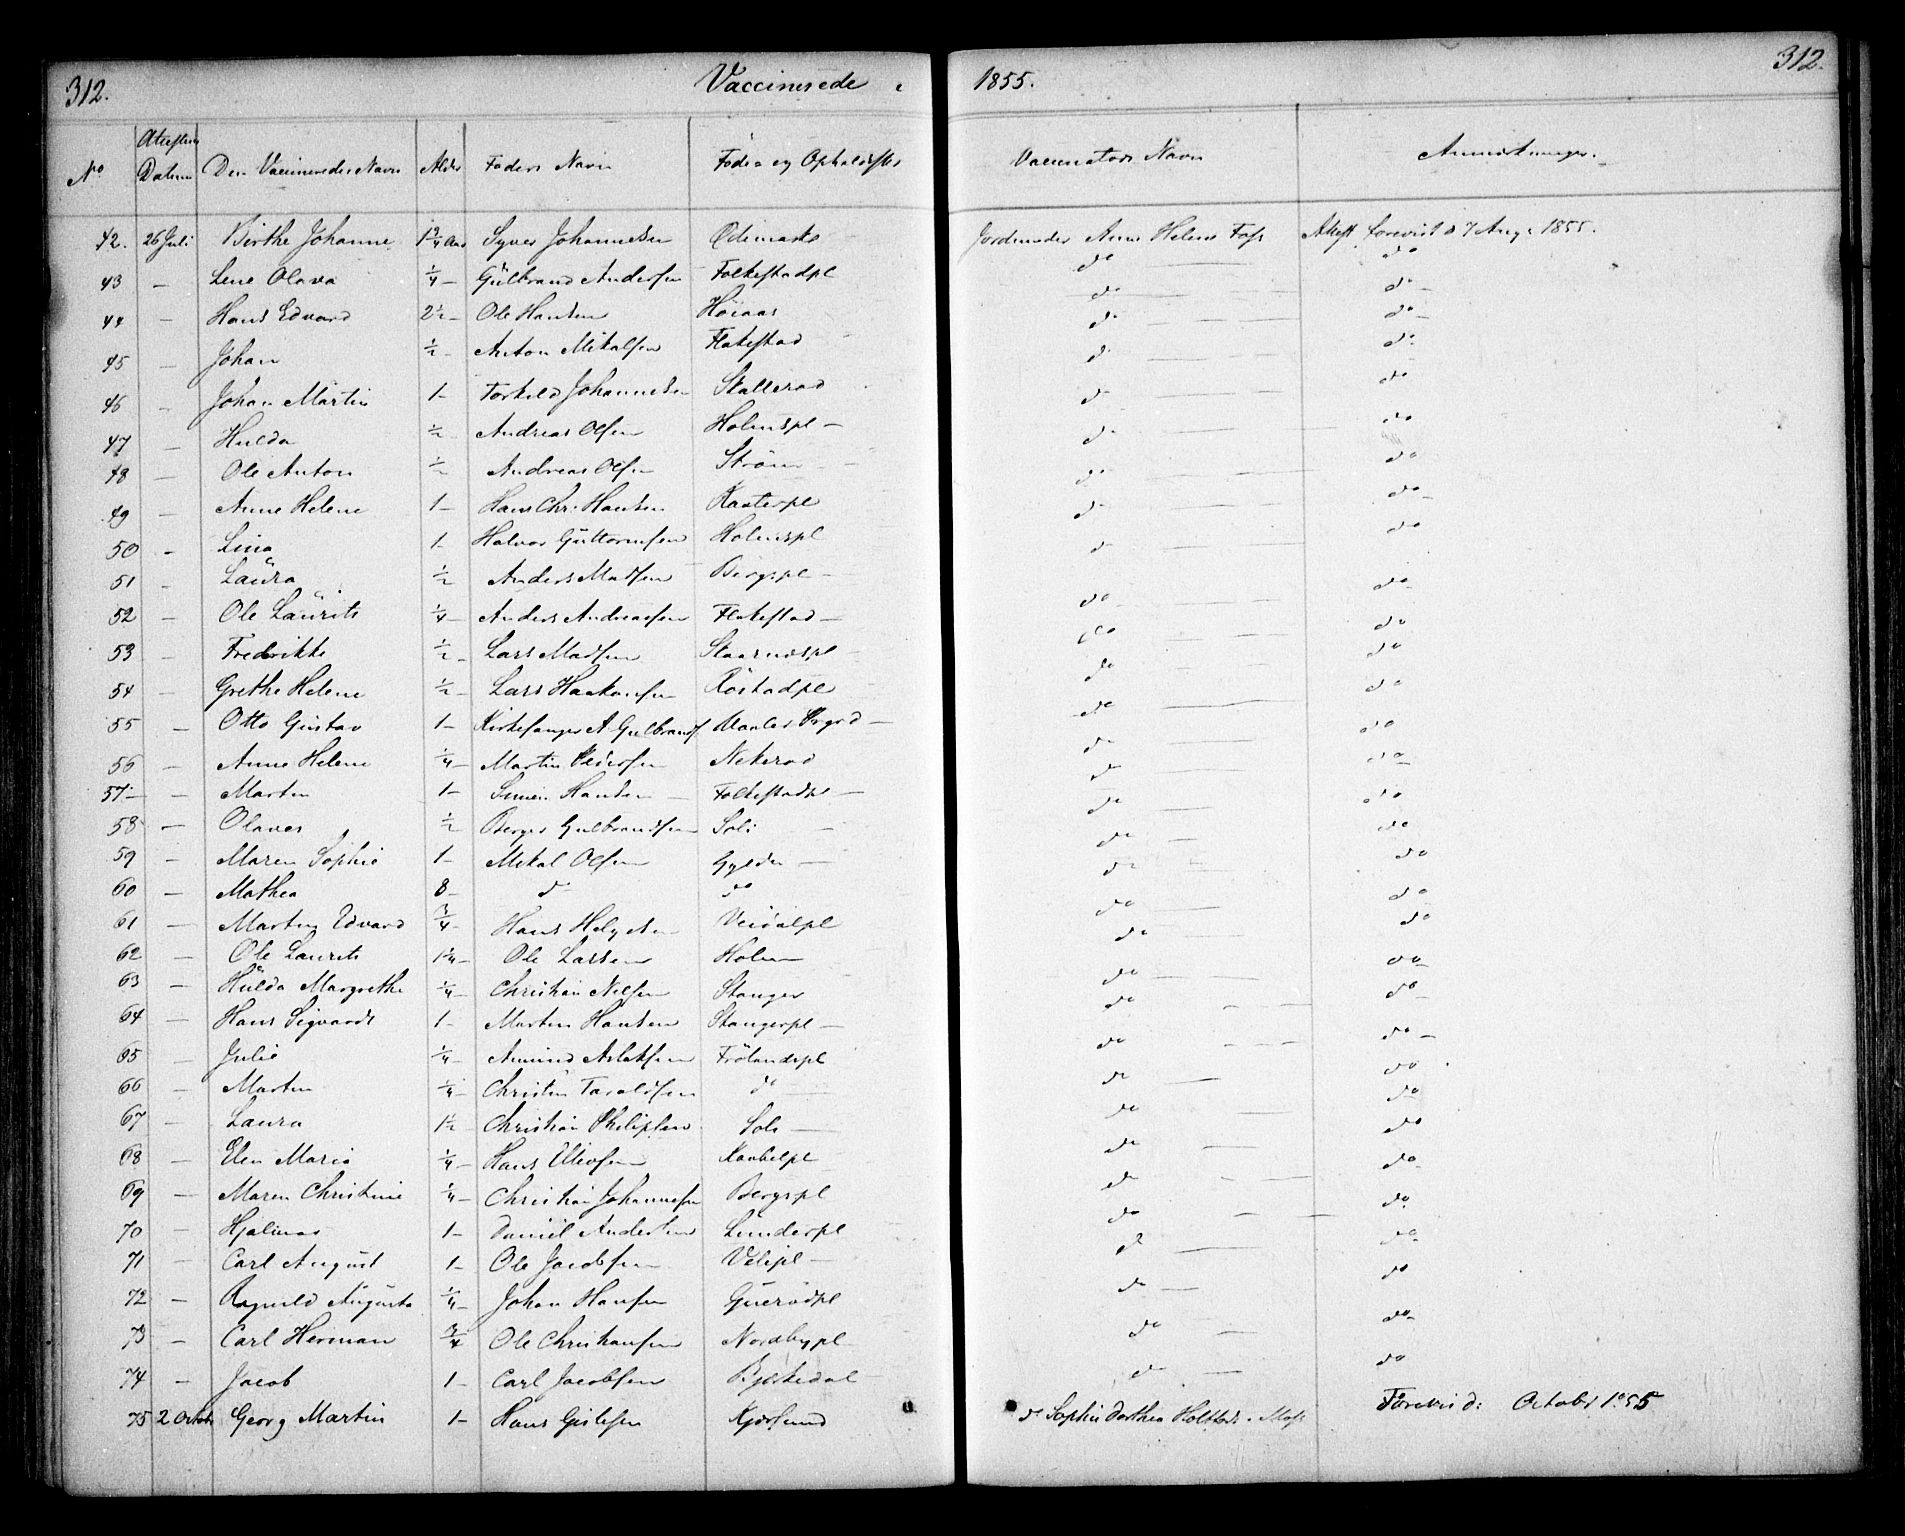 312. Vaccinerede i 1855. 312.
No Attestens Datum Den Vaccineredes Navn Alder Faders Navn Føde- og Opholdssted Vaccinators Navn Anmærkninger.
42. 26 Juli Birthe Johanne 1 3/4 Aar Syver Johannesen Jordmoder Anne Helene Foss Attest foreviist d 7 Aug. 1855.
43 — Lene Olava 1/4 — Gulbrand Andersen Folkestadpl do do
44 — Hans Edvard 2 1/2 — Ole Hansen Höiaas do do
45 — Johan 1/2 — Anton Mikalsen Flakestad do do
46 — Johan Martin 1 — Torkild Johannesen Skallerød do do
47 — Hulda 1/2 — Andreas Olsen Holmspl — do do
48 — Ole Anton 1/2 — Andreas Olsen Ström — do do
49 — Anne Helene 1 — Hans Chr. Hansen do do
50 — Lina 1 — Halvor Guttormsen Holmspl do do
51 — Laura 1/2 — Anders Madsen Bergspl — do do
52 — Ole Laurits 1/4 — Anders Andreassen Flakestad — do do
53 — Fredrikke 1/2 — Lars Madsen do do
54 — Grethe Helene 1/2 — Lars Haakonsen Röstadpl do do
55 — Otto Gustav 1 — Kirkesanger A Gulbrands. do do
56 — Anne Helene 1/4 — Martin Pedersen Nekerød do do
57 — — Martin 1 — Simen Hansen — Folkestadpl — do do
58 — Olaves 1/2 Børger Gulbrandsen Soli — do do
59 — Maren Sophie 1 — Mikal Olsen Gylder — do do
60 — Mathea 8 — do do do do
61 — Martin Edvard 3/4 — Hans Helgesen Veidalpl do do
62 — Ole Laurits 1 1/4 — Ole Larsen Holm do do
63 — Hulda Margrethe 1/4 — Christian Nilsen Stanger do do
64 — Hans Sigvardt 1 — Martin Hansen Stangerpl — do do
65 — Julie 1/4 — Amund Aslaksen Frölandspl do do
66 — Martin 1/4 — Christen Taraldsen do do do
67 — Laura 1 1/2 Christian Philipsen Soli — do do
68 — Elen Marie 1/4 — Hans Ellevsen do do
69 — Maren Christine 1/4 — Christian Johannesen Bergspl do do
70 — Hjalmar 1 — Daniel Andersen Lunderpl do do
71 — Carl August 1 — Ole Jacobsen — do do
72 — Ragnild Augusta 1/4 — Johan Hansen do do
73 — Carl Herman 3/4 Ole Christiansen Nordbypl do do
74 — Jacob 1 — Carl Jacobsen Bjerkedal do do
75 2 Octob Georg Martin 1 — Hans Gislesen Kjærsund do Sophie Dorthea Holtstad. Moss Forevis d: October 1855